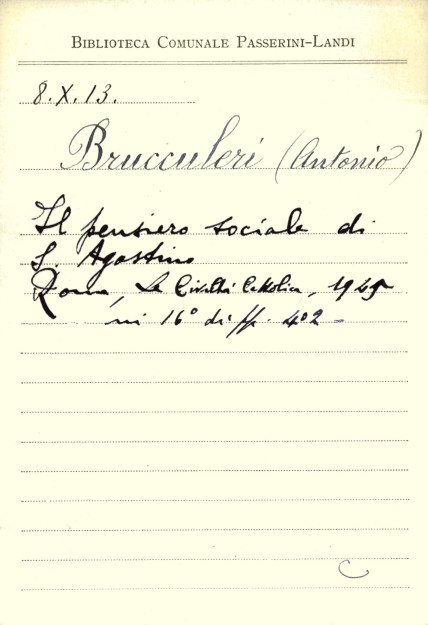 BIBLIOTECA COMUNALE PASSERINI-LANDI
8.X.13.
Brucculeri (Antonio)
Il pensiero sociale di
S. Agostino
Roma, La Civiltà Cattolica, 1945
in 16° di pp. 402 -
C